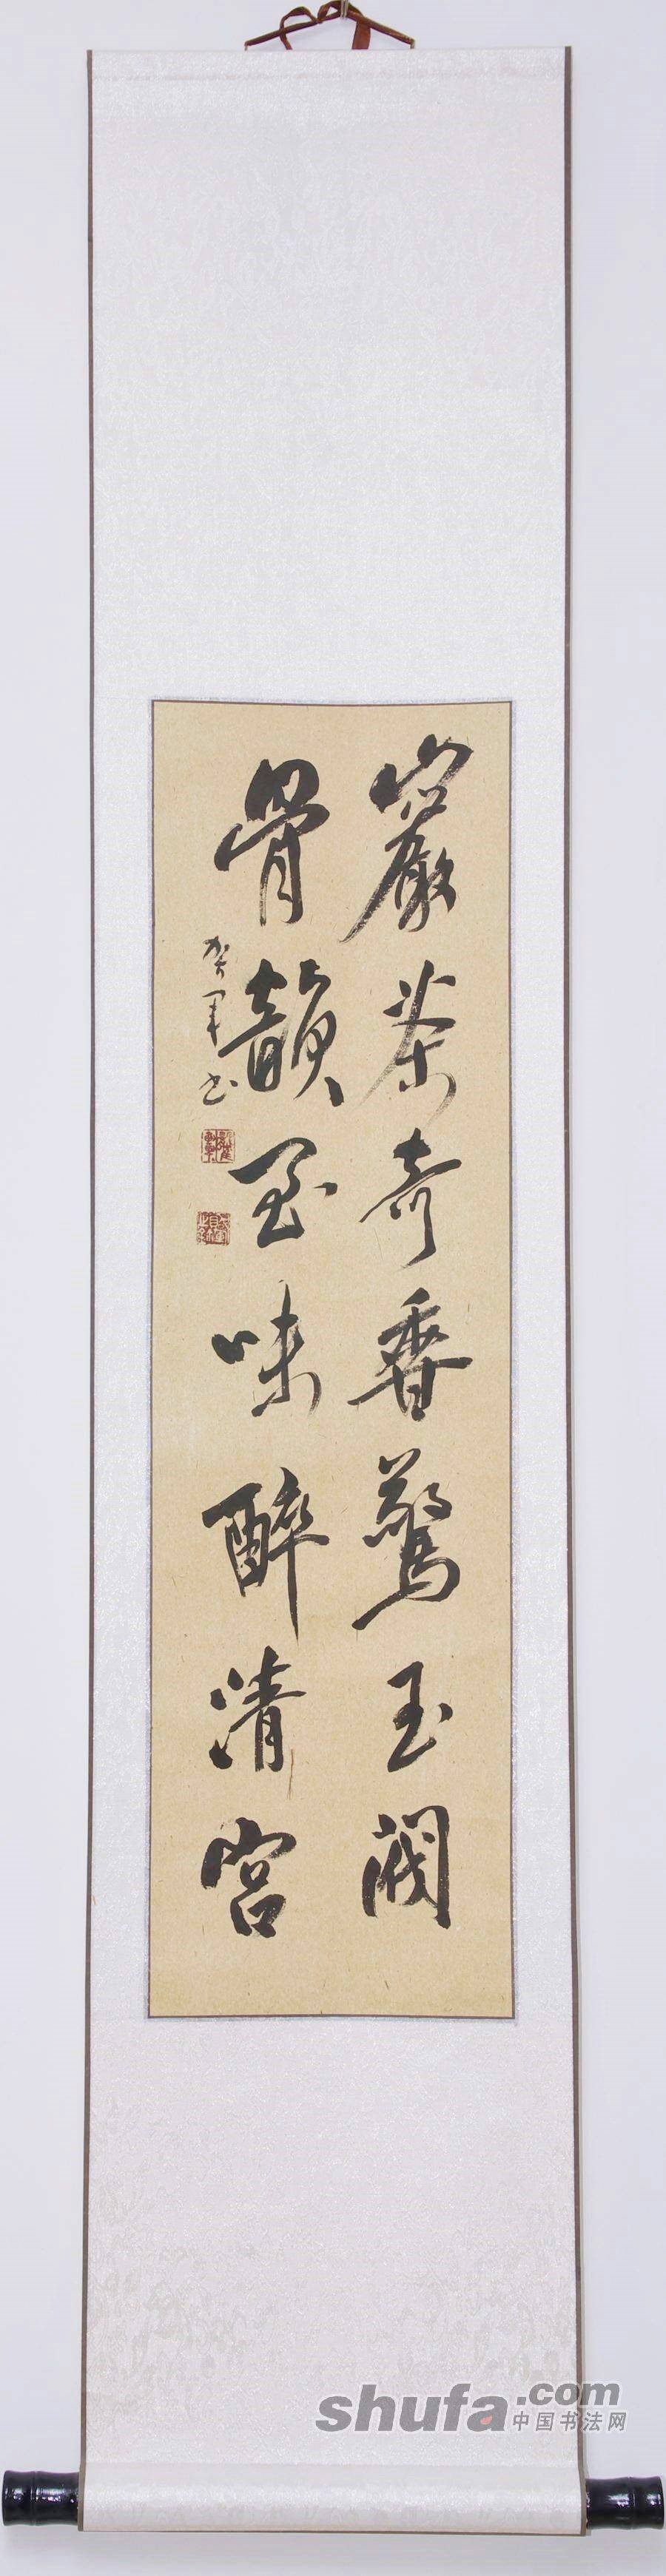 巖茶奇香驚玉閣
骨韻至味醉清宮
賀軍书
shufa.com
中国书法网